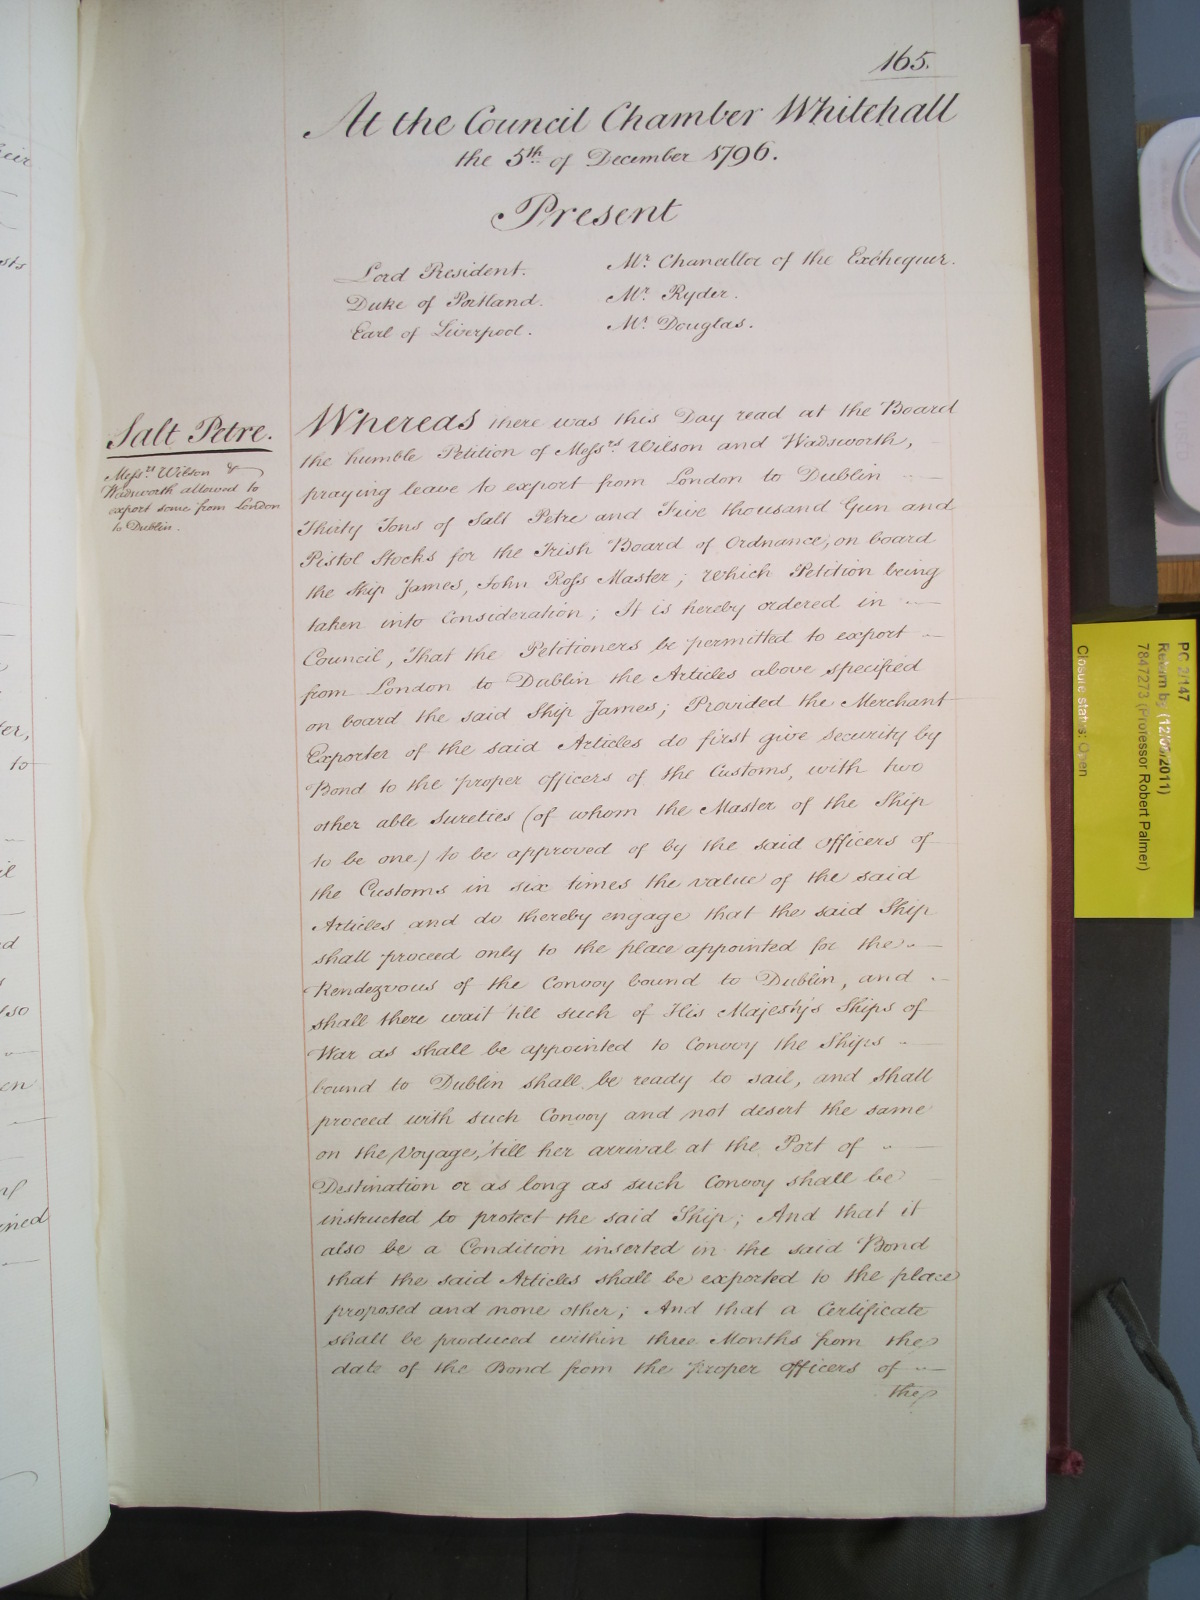 165.
At the Council Chamber Whitehall
the 5th. of December 1796.
Present
Lord President.
Duke of Portland.
Earl of Liverpool.
Mr. Chancellor of the Exchequer.
Mr. Ryder.
Mr. Douglas.
Salt Petre.
Messrs. Wilson &
Wadsworth allowed to
export some from London
to Dublin.
Whereas there was this Day read at the Board
the humble Petition of Messrs. Wilson and Wadsworth,
praying leave to export from London to Dublin
Thirty Tons of Salt Petre and Five thousand Gun and
Pistol Stocks for the Irish Board of Ordnance, on board
the Ship James, John Ross Master; which Petition being
taken into Consideration; It is hereby ordered in
Council, That the Petitioners be permitted to export
from London to Dublin the Articles above specified
on board the said Ship James; Provided the Merchant
Exporter of the said Articles do first give security by
Bond to the proper Officers of the Customs, with two
other able sureties (of whom the Master of the Ship
to be one) to be approved of by the said Officers of
the Customs in six times the value of the said
Articles and do thereby engage that the said Ship
shall proceed only to the place appointed for the
Rendezvous of the Convoy bound to Dublin, and
shall there wait 'till such of His Majesty's Ships of
War as shall be appointed to Convoy the Ships
bound to Dublin shall be ready to sail, and shall
proceed with such Convoy and not desert the same
on the Voyage, 'till her arrival at the Port of
Destination or as long as such Convoy shall be
instructed to protect the said Ship; And that it
also be a Condition inserted in the said Bond
that the said Articles shall be exported to the place
proposed and none other; And that a Certificate
shall be produced within three Months from the
date of the Bond from the proper Officers of
the
PC 2/147
Return by (12/05/2011)
7847273 (Professor Robert Palmer)
Closure status: Open